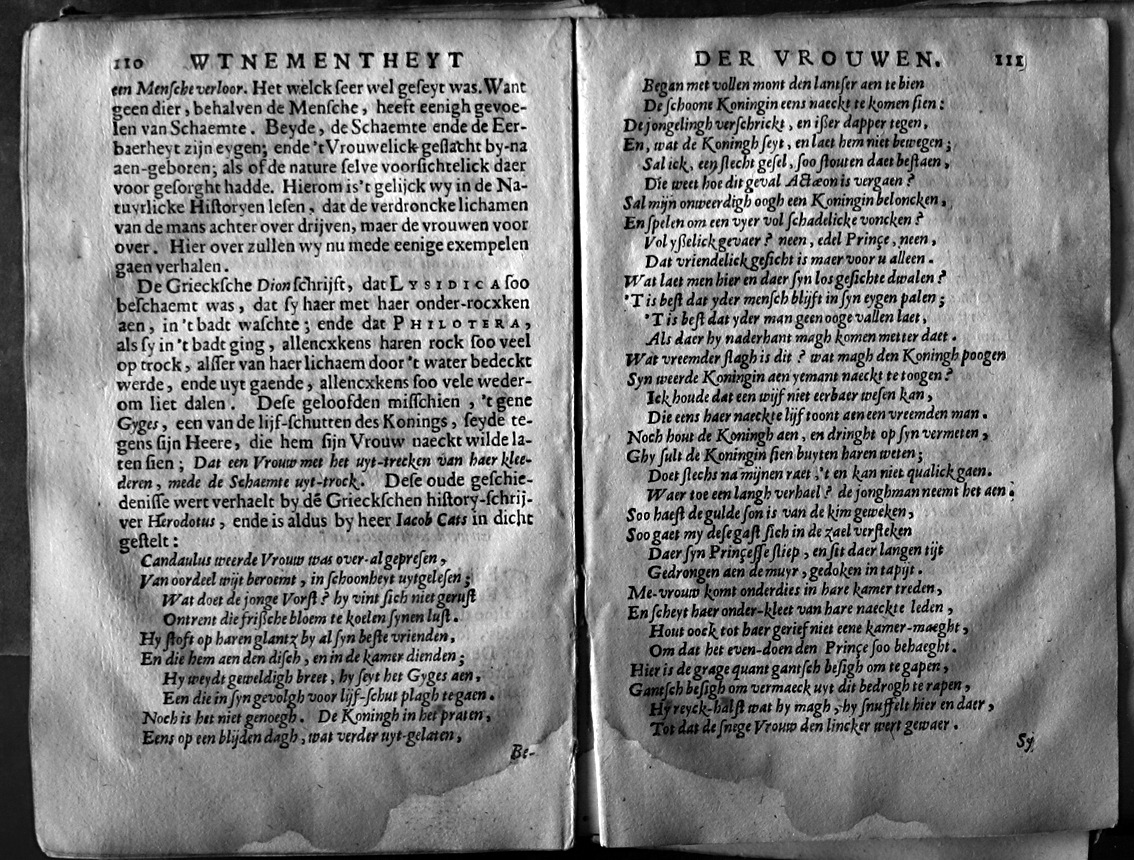 110 WTNEMENTHEYT
een Mensche verloor. Het welck seer wel geseyt was. Want
geen dier, behalven de Mensche, heeft eenigh gevoe-
len van Schaemte. Beyde, de Schaemte ende de Eer-
baerheyt zijn eygen; ende 't Vrouwelick geslacht by-na
aen-geboren; als of de nature selve voorsichtelick daer
voor gesorght hadde. Hierom is't gelijck wy in de Na-
tuyrlicke Historyen lesen, dat de verdroncke lichamen
van de mans achter over drijven, maer de vrouwen voor
over. Hier over zullen wy nu mede eenige exempelen
gaen verhalen.
De Griecksche Dion schrijft, dat LYSIDICA soo
beschaemt was, dat sy haer met haer onder-rocxken
aen, in 't badt waschte; ende dat PHILOTERA,
als sy in 't badt ging, allencxkens haren rock soo veel
op trock, alsser van haer lichaem door 't water bedeckt
werde, ende uyt gaende, allencxkens soo vele weder-
om liet dalen. Dese geloofden misschien, 't gene
Gyges, een van de lijf-schutten des Konings, seyde te-
gens sijn Heere, die hem sijn Vrouw naeckt wilde la-
ten sien; Dat een Vrouw met het uyt-trecken van haer klee-
deren, mede de Schaemte uyt-trock. Dese oude geschie-
denisse wert verhaelt by dē Grieckschen history-schrij-
ver Herodotus, ende is aldus by heer Iacob Cats in dicht
gestelt:
Candaulus weerde Vrouw was over-al gepresen,
Van oordeel wijt beroemt, in schoonheyt uytgelesen;
Wat doet de jonge Vorst? hy vint sich niet gerust
Ontrent die frissche bloem te koelen synen lust.
Hy stoft op haren glantz by al syn beste vrienden,
En die hem aen den disch, en in de kamer dienden;
Hy weydt geweldigh breet, hy seyt het Gyges aen,
Een die in syn gevolgh voor lijf-schut plagh te gaen.
Noch is het niet genoegh. De Koningh in het praten,
Eens op een blijden dagh, wat verder uyt-gelaten,
Be-
DER VROUWEN. 111
Began met vollen mont den lantser aen te bien
De schoone Koningin eens naeckt te komen sien:
De jongelingh verschrickt, en isser dapper tegen,
En, wat de Koningh seyt, en laet hem niet bewegen;
Sal ick, een slecht gesel, soo stouten daet bestaen,
Die weet hoe dit geval Actæon is vergaen?
Sal mijn onweerdigh oogh een Koningin beloncken,
En spelen om een vyer vol schadelicke voncken?
Vol ysselick gevaer? neen, edel Prinçe, neen,
Dat vriendelick gesicht is maer voor u alleen.
Wat laet men hier en daer syn los gesichte dwalen?
'T is best dat yder mensch blijft in syn eygen palen;
'T is best dat yder man geen ooge vallen laet,
Als daer hy naderhant magh komen metter daet.
Wat vreemder slagh is dit? wat magh den Koningh poogen
Syn weerde Koningin aen yemant naeckt te toogen?
Ick houde dat een wijf niet eerbaer wesen kan,
Die eens haer naeckte lijf toont aen een vreemden man.
Noch hout de Koningh aen, en dringht op syn vermeten,
Ghy sult de Koningin sien buyten haren weten;
Doet slechs na mijnen raet, 't en kan niet qualick gaen.
Waer toe een langh verhael? de jonghman neemt het aen.
Soo haest de gulde son is van de kim geweken,
Soo gaet my dese gast sich in de zael versteken
Daer syn Prinçesse sliep, en sit daer langen tijt
Gedrongen aen de muyr, gedoken in tapijt.
Me-vrouw komt onderdies in hare kamer treden,
En scheyt haer onder-kleet van hare naeckte leden,
Hout oock tot haer gerief niet eene kamer-maeght,
Om dat het even-doen den Prinçe soo behaeght.
Hier is de grage quant gantsch besigh om te gapen,
Gantsch besigh om vermaeck uyt dit bedrogh te rapen,
Hy reyck-halst wat hy magh, hy snuffelt hier en daer,
Tot dat de snege Vrouw den lincker wert gewaer.
Sy